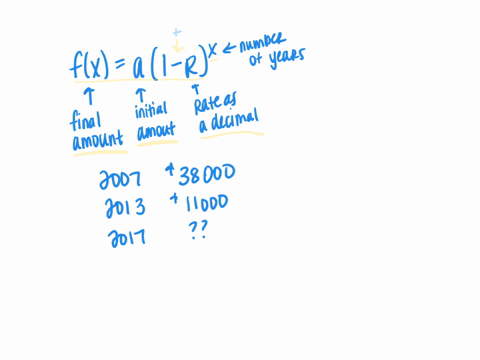 +
f(x) = a (1-R)^x ← number of years
↑ final amount
↑ initial amout
↑ Rate as a decimal
2007 $38000
2013 $11000
2017 ??